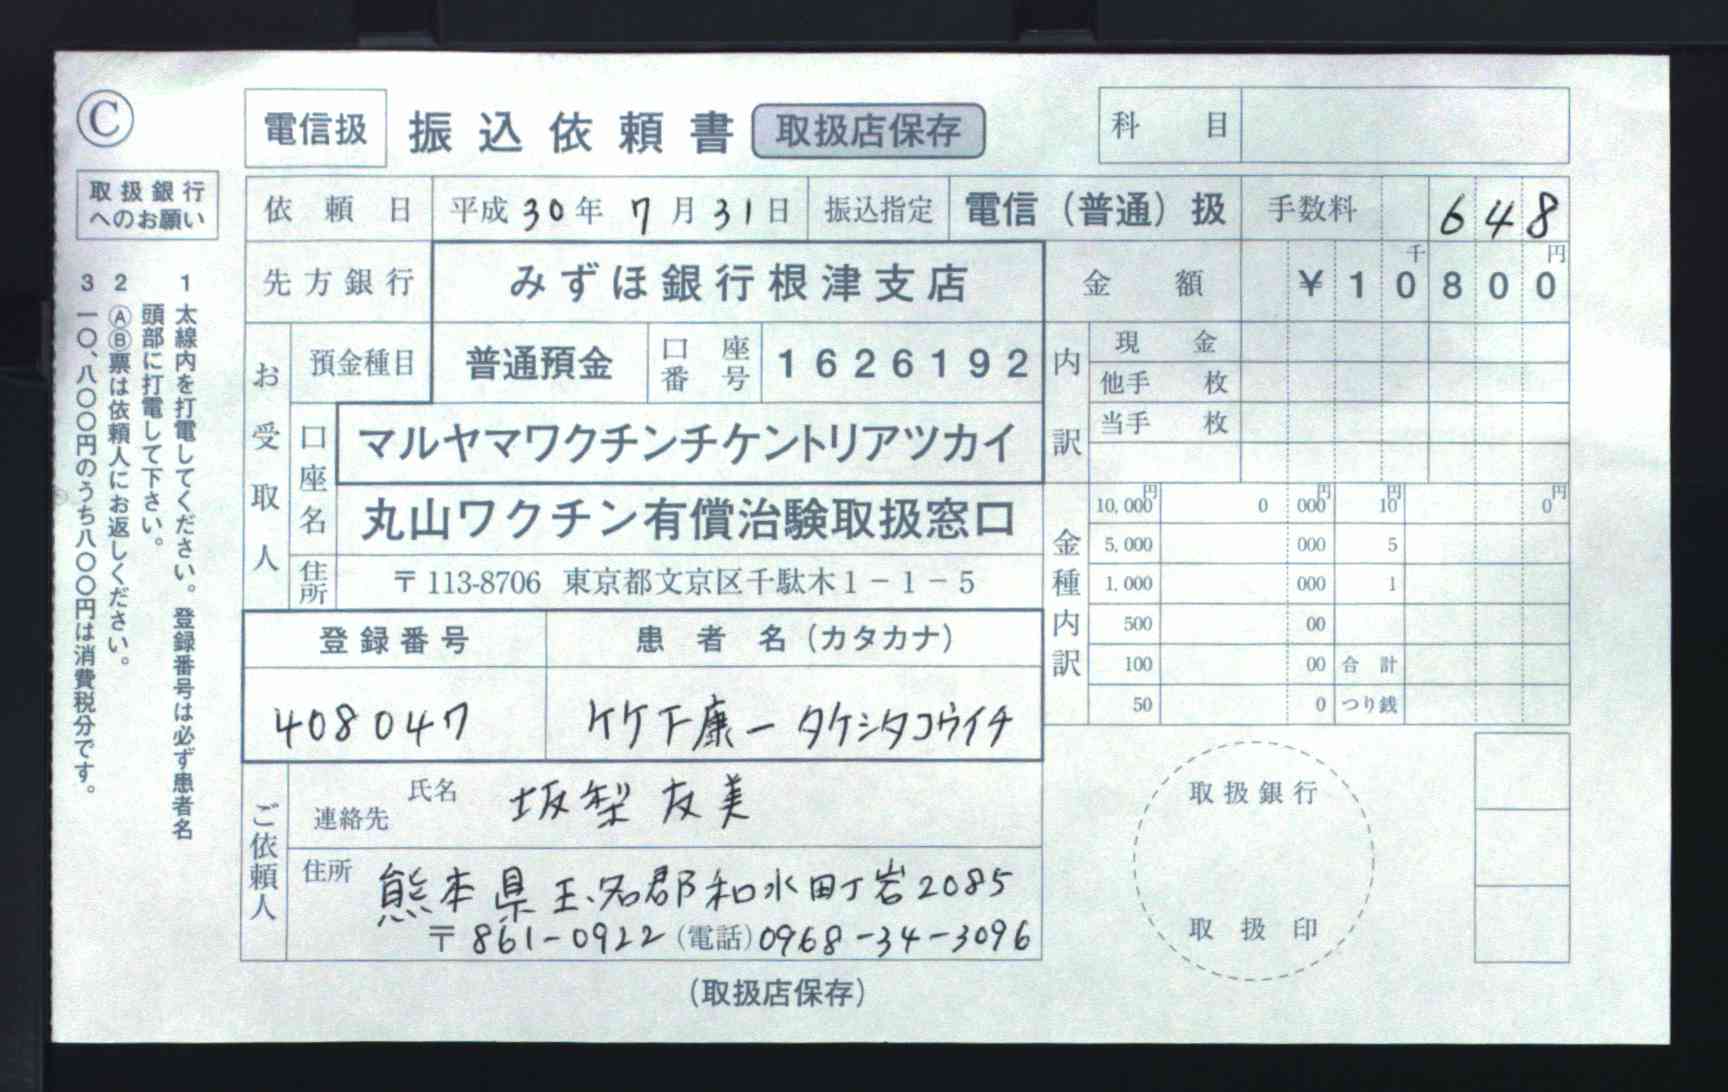 Ⓒ
電信扱 振込依頼書 取扱店保存 科目
取扱銀行
へのお願い
1 太線内を打電してください。登録番号は必ず患者名
頭部に打電して下さい。
2 ⒶⒷ票は依頼人にお返しください。
3 一〇、八〇〇円のうち八〇〇円は消費税分です。
依頼日 平成30年7月31日 振込指定 電信（普通）扱 手数料 648
先方銀行 みずほ銀行根津支店 金額 千 円 ¥10800
お受取人 預金種目 普通預金 口座番号 1626192
口座名 マルヤマワクチンチケントリアツカイ
丸山ワクチン有償治験取扱窓口
住所 〒113-8706 東京都文京区千駄木1－1－5
内訳 現金
他手 枚
当手 枚
金種内訳 10,000円 0 000円 10円 0円
5,000 000 5
1,000 000 1
500 00
100 00 合計
50 0 つり銭
登録番号 患者名（カタカナ）
408047 竹下康一 タケシタコウイチ
ご依頼人 連絡先 氏名 坂梨友美
住所 熊本県玉名郡和水町岩2085
〒861-0922（電話）0968-34-3096
取扱銀行
取扱印
（取扱店保存）